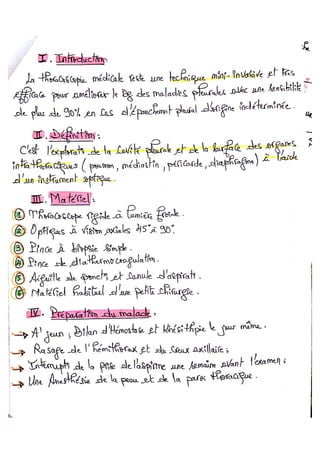 I. Introduction:
La thoracoscopie médicale reste une technique mini-invasive et très
efficace pour améliorer le Dg des maladies pleurales avec une sensibilité
de plus de 90% en cas d'épanchement pleural d'origine indéterminée.
II. Définition:
C'est l'exploration de la cavité pleurale et de la surface des organes
intrathoraciques (poumon, médiastin, péricarde, diaphragme) à l'aide
d'un instrument optique.
III. Matériel:
① Thoracoscope rigide à lumière froide.
② Optiques à vision axiales 45° à 90°.
③ Pince à biopsie simple.
④ Pince de diathermocoagulation.
⑤ Aiguille de ponction et canule d'aspirat.
⑥ Matériel habituel d'une petite chirurgie.
IV. Préparation du malade:
→ A' jeun, Bilan d'Hémostase et Kinésithpie le jour même.
→ Rasage de l'hémithorax et du creux axillaire;
→ Interrupt de la prise de l'aspirine une semaine avant l'examen;
→ Une Anesthésie de la peau et de la paroi thoracique.